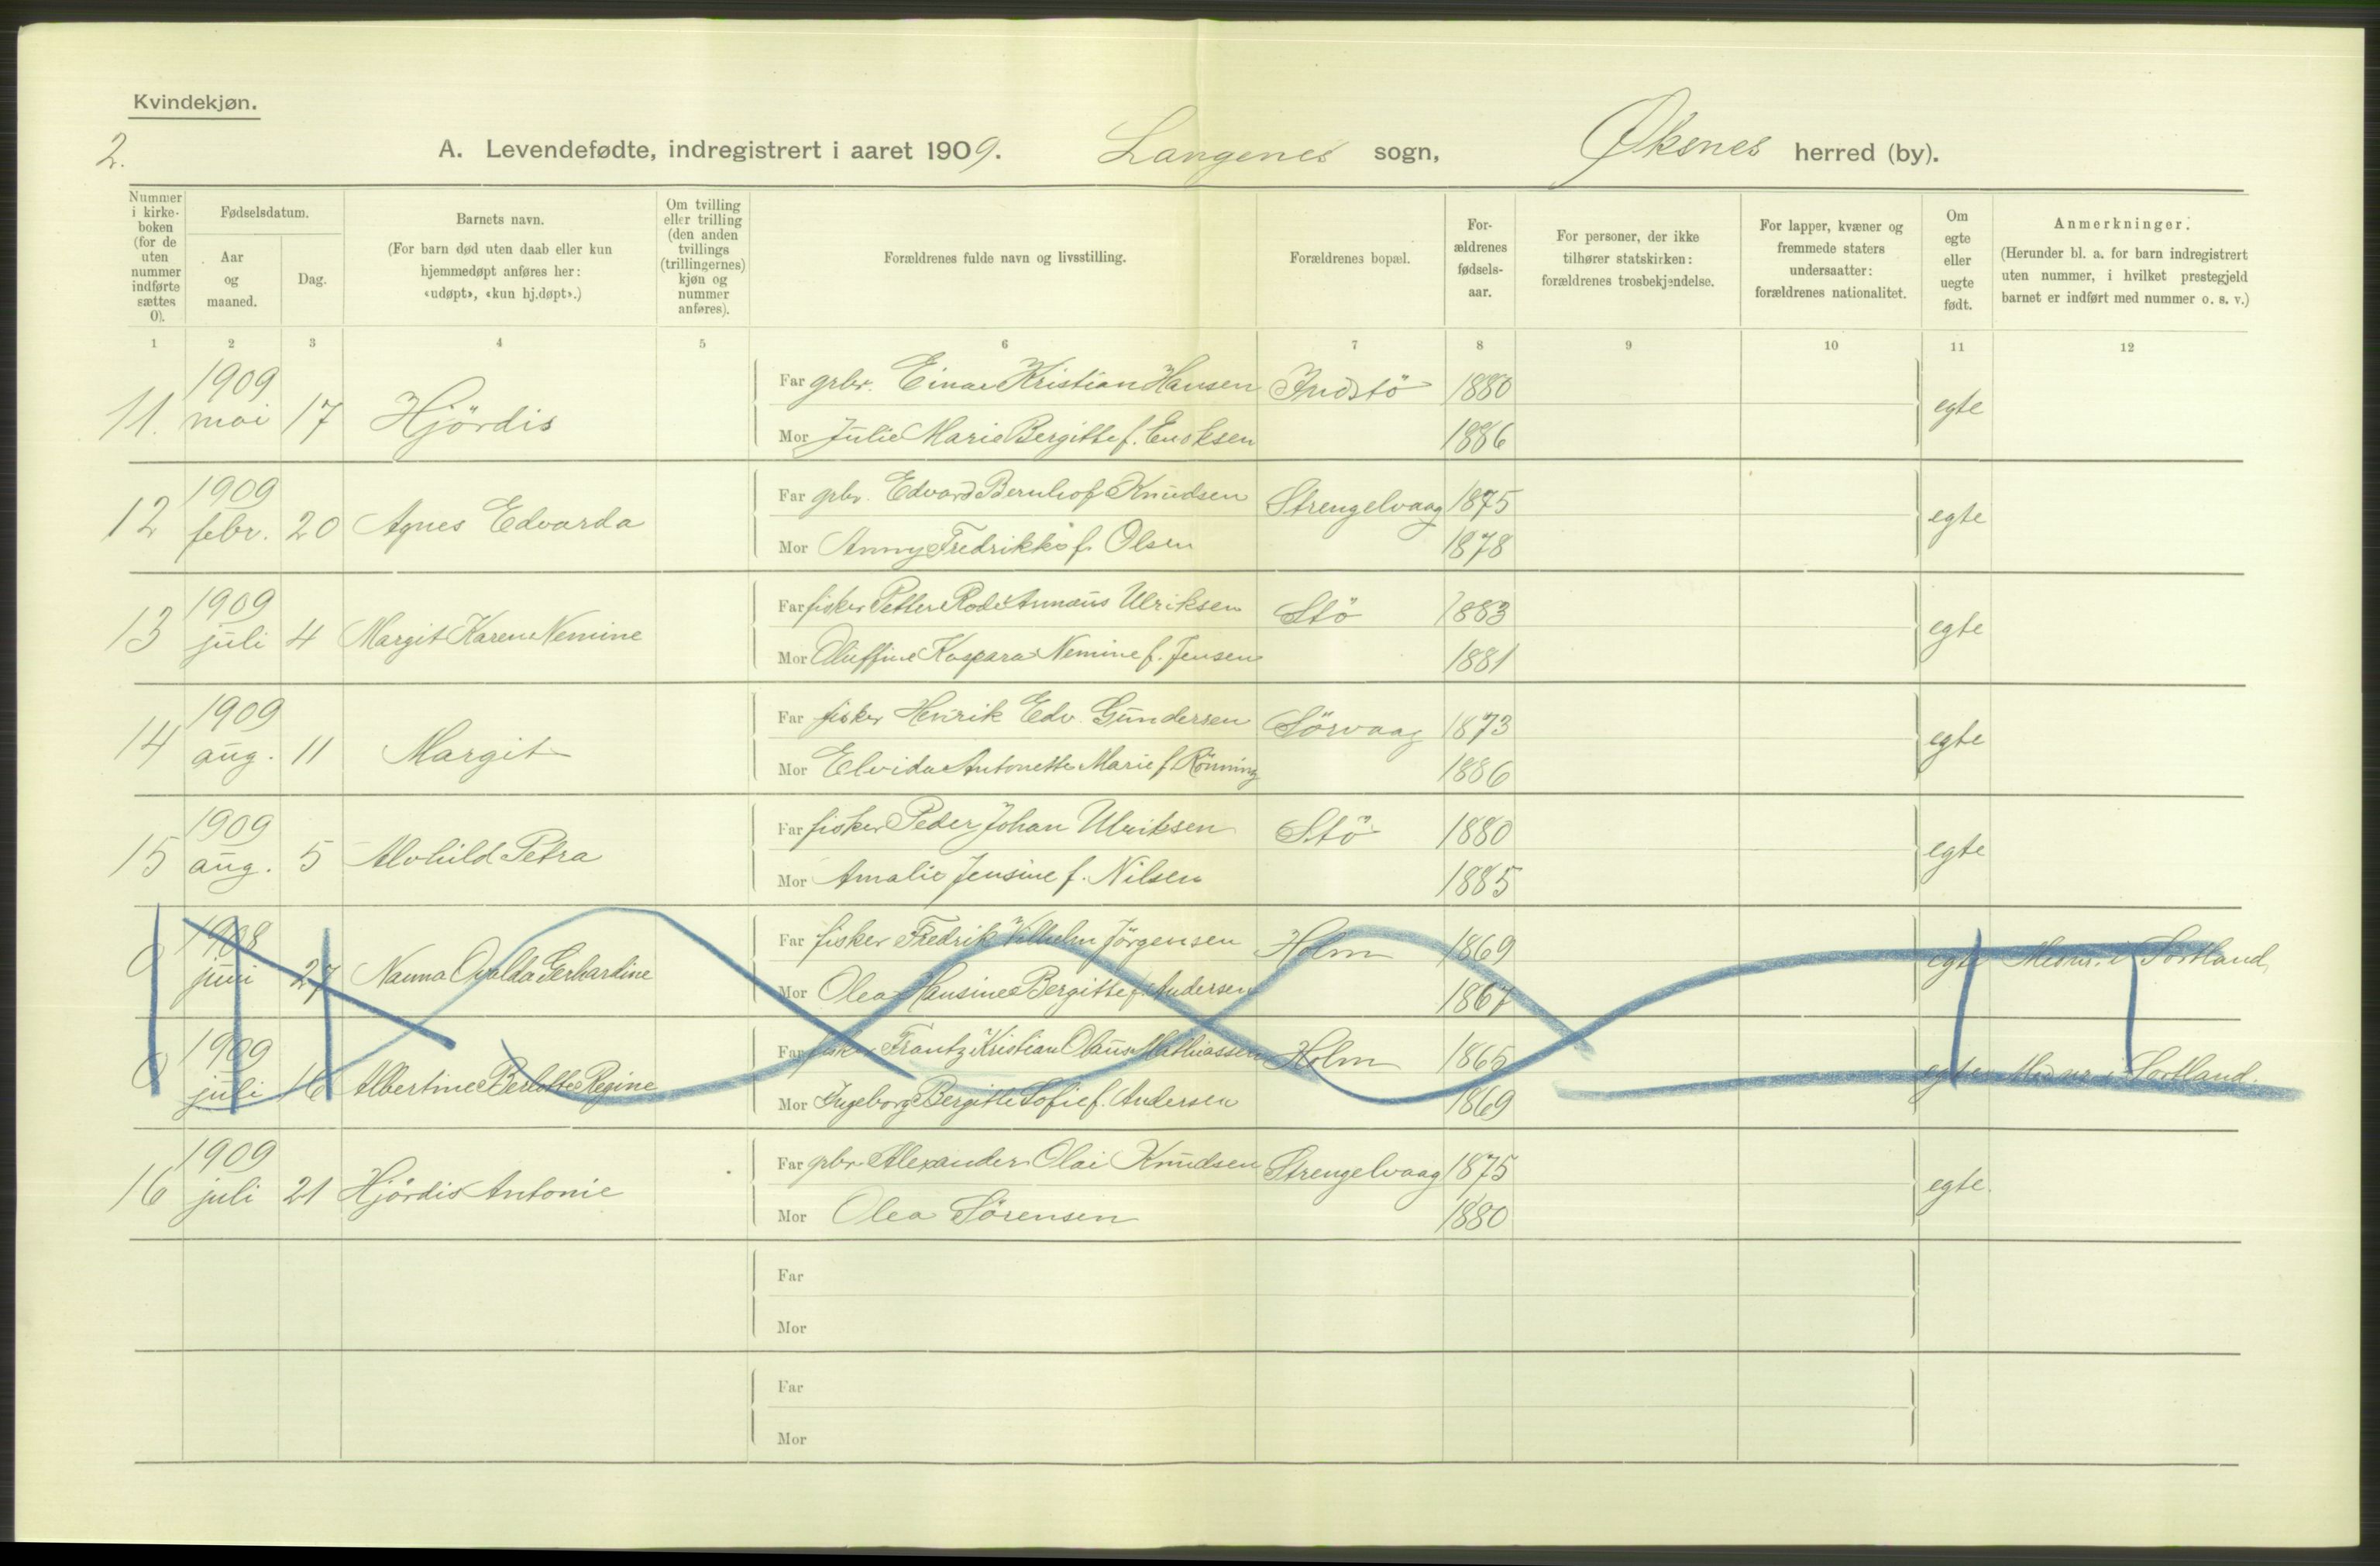 Kvindekjøn.
2.
A. Levendefødte, indregistrert i aaret 1909. Langenes sogn, Øksnes herred (by).
Nummer i kirke-boken (for de uten nummer indførte sættes 0).
Fødselsdatum.
Aar og maaned.
Dag.
Barnets navn.
(For barn død uten daab eller kun hjemmedøpt anføres her: «udøpt», «kun hj.døpt».)
Om tvilling eller trilling (den anden tvillings (trillingernes) kjøn og nummer anføres).
Forældrenes fulde navn og livsstilling.
Forældrenes bopæl.
For-ældrenes fødsels-aar.
For personer, der ikke tilhører statskirken: forældrenes trosbekjendelse.
For lapper, kvæner og fremmede staters undersaatter: forældrenes nationalitet.
Om egte eller uegte født.
Anmerkninger.
(Herunder bl. a. for barn indregistrert uten nummer, i hvilket prestegjeld barnet er indført med nummer o. s. v.)
1 2 3 4 5 6 7 8 9 10 11 12
11. 1909 mai 17 Hjördis
Far grbr. Einar Kristian Hansen Indstö 1880 egte
Mor Julie Marie Bergitte f. Enoksen 1886
12 1909 febr. 20 Agnes Edvarda
Far grbr. Edvard Bernhof Knudsen Strengelvaag 1875 egte
Mor Anny Fredrikke f. Olsen 1878
13 1909 juli 4 Margit Karene Nemine
Far fisker Petter Rode Annæus Ulriksen Stö 1883 egte
Mor Oluffine Kaspara Nemine f. Jensen 1881
14 1909 aug. 11 Margit
Far fisker Henrik Edv. Gundersen Sörvaag 1873 egte
Mor Elvida Antonette Marie f. Rönning 1886
15 1909 aug. 5 Alvhild Petra
Far fisker Peder Johan Ulriksen Stö 1880 egte
Mor Amalie Jensine f. Nilsen 1885
0 1908 juni 27 Nanna Ovalda Gerhardine
Far fisker Fredrik Vilhelm Jörgensen Holm 1869 egte Med nr. i Sortland
Mor Olea Hansine Bergitte f. Andersen 1867
0 1909 juli 16 Albertine Berlotte Regine
Far fisker Frantz Kristian Olaus Mathiassen Holm 1865 egte Med nr i Sortland.
Mor Ingeborg Bergitte Sofie f. Andersen 1869
16 1909 juli 21 Hjördis Antonie
Far grbr. Alexander Olai Knudsen Strengelvaag 1875 egte.
Mor Olea Sörensen 1880
Far
Mor
Far
Mor